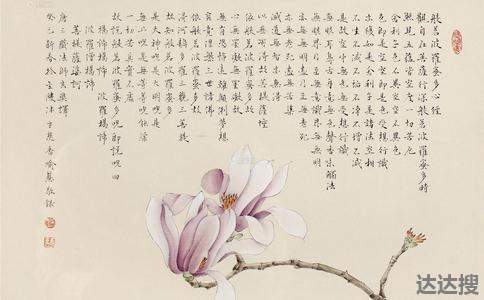 般若波羅蜜多心經
觀自在菩薩行深般若波羅蜜多時
照見五蘊皆空度一切苦厄
舍利子色不異空空不異色
色即是空空即是色受想行識
亦復如是舍利子是諸法空相
不生不滅不垢不淨不增不減
是故空中無色無受想行識
無眼耳鼻舌身意無色聲香味觸法
無眼界乃至無意識界無無明
亦無無明盡乃至無老死
亦無老死盡無苦集
滅道無智亦無得
以無所得故菩提薩埵
依般若波羅蜜多故
心無罣礙無罣礙故
無有恐怖遠離顛倒夢想
究竟涅槃三世諸佛
依般若波羅蜜多故
得阿耨多羅三藐三菩提
故知般若波羅蜜多
是大神咒是大明咒
是無上咒是無等等咒能除
一切苦真實不虛
故說般若波羅蜜多咒即說咒曰
揭諦揭諦 波羅揭諦
波羅僧揭諦
菩提薩婆訶
唐三藏法師玄奘譯
癸巳新春於喻慧敬錄
达达搜